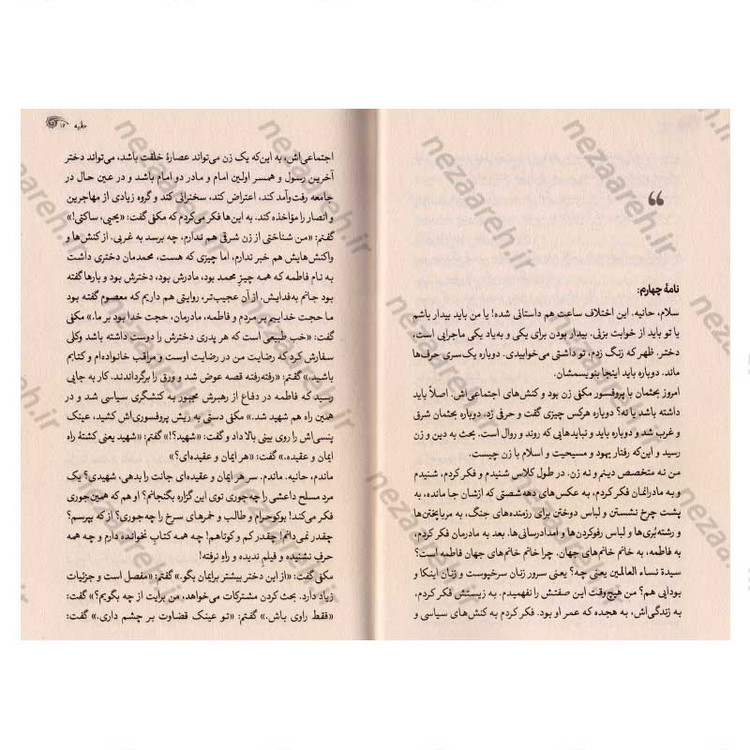 نامهٔ چهارم:
سلام، حانیه. این اختلاف ساعت هم داستانی شده! یا من باید بیدار باشم
یا تو باید از خوابت بزنی. بیدار بودن برای یکی و به‌یاد یکی ماجرایی است،
دختر. ظهر که زنگ زدم، تو داشتی می‌خوابیدی. دوباره یک‌سری حرف‌ها
ماند. دوباره باید اینجا بنویسمشان.
امروز بحثمان با پروفسور مکنی زن بود و کنش‌های اجتماعی‌اش. اصلاً باید
داشته باشد یا نه؟ دوباره هرکس چیزی گفت و حرفی زد. دوباره بحثمان شرق
و غرب شد و دوباره باید و نبایدهایی که روند و روال است. بحث به دین و زن
رسید و این‌که رفتار یهود و مسیحیت و اسلام با زن چیست.
من نه متخصص دینم و نه زن. در طول کلاس شنیدم و فکر کردم، شنیدم
و به مادرانمان فکر کردم، به عکس‌های دههٔ شصتی که ازشان جا مانده، به
پشت چرخ نشستن و لباس دوختن برای رزمنده‌های جنگ، به مرباپختن‌ها
و رشته‌بُری‌ها و لباس رفوکردن‌ها و امدادرسانی‌ها. بعد به مادرمان فکر کردم،
به فاطمه، به خانم خانم‌های جهان. چرا خانم خانم‌های جهان فاطمه است؟
سیدة نساء العالمین یعنی چه؟ یعنی سرور زنان سرخپوست و زنان اینکا و
بودایی هم؟ من هیچ‌وقت این صفتش را نفهمیدم. به زیستش فکر کردم،
به زندگی‌اش، به هجده که عمر او بود. فکر کردم به کنش‌های سیاسی و
۱۷
اجتماعی‌اش، به این‌که یک زن می‌تواند عصارهٔ خلقت باشد، می‌تواند دختر
آخرین رسول و همسر اولین امام و مادر دو امام باشد و در عین حال در
جامعه رفت‌وآمد کند، اعتراض کند، سخنرانی کند و گروه زیادی از مهاجرین
و انصار را مؤاخذه کند. به این‌ها فکر می‌کردم که مکنی گفت: «یحیی، ساکتی!»
گفتم: «من شناختی از زن شرقی هم ندارم، چه برسد به غربی. از کنش‌ها و
واکنش‌هایش هم خبر ندارم. اما چیزی که هست، محمدمان دختری داشت
به نام فاطمه که همه چیزِ محمد بود، مادرش بود، دخترش بود و بارها گفته
بود جانم به‌فدایش. از آن عجیب‌تر، روایتی هم داریم که معصوم گفته بود
ما حجت خداییم بر مردم و فاطمه، مادرمان، حجت خدا بود بر ما.» مکنی
گفت: «خب طبیعی است که هر پدری دخترش را دوست داشته باشد وکلی
سفارش کرد که رضایت من در رضایت اوست و مراقب خانواده‌ام و کتابم
باشید.» گفتم: «رفته‌رفته قصه عوض شد و ورق را برگرداندند. کار به جایی
رسید که فاطمه در دفاع از رهبرش مجبور به کنشگری سیاسی شد و در
همین راه هم شهید شد.» مکنی دستی به ریش پروفسوری‌اش کشید، عینک
پنسی‌اش را روی بینی بالا داد و گفت: «شهید؟!» گفتم: «شهید یعنی کشتهٔ راه
ایمان و عقیده.» گفت: «هر ایمان و عقیده‌ای؟»
ماندم، حانیه. ماندم. سرِ هر ایمان و عقیده‌ای جانت را بدهی، شهیدی؟ یک
مرد مسلح داعشی را چه‌جوری توی این گزاره بگنجانم؟ او هم که همین‌جوری
فکر می‌کند! بوکوحرام و طالب و خمرهای سرخ را چه‌جوری؟ از که بپرسم؟
چقدر نمی‌دانم! چقدر کم و کوتاهم! چه همه کتابِ نخوانده دارم و چه همه
حرفِ نشنیده و فیلم ندیده و راه نرفته!
مکنی گفت: «از این دختر بیشتر برایمان بگو.» گفتم: «مفصل است و جزئیات
زیاد دارد. بحث کردن مشترکات می‌خواهد، من برایت از چه بگویم؟» گفت:
«فقط راوی باش.» گفتم: «تو عینک قضاوت بر چشم داری.» گفت:
nezaareh.ir